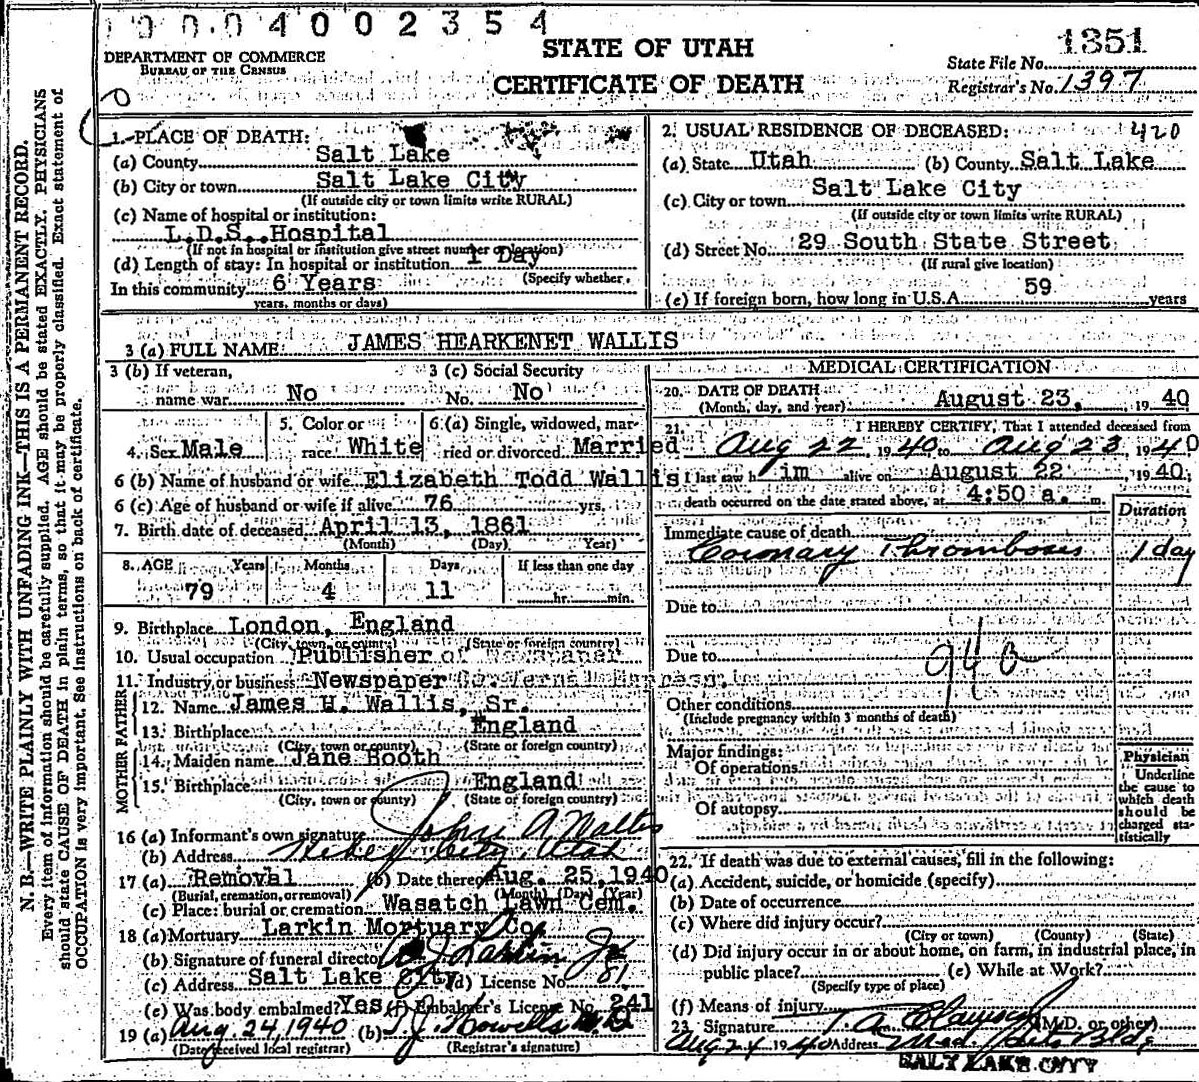 0004002354
DEPARTMENT OF COMMERCE
BUREAU OF THE CENSUS
STATE OF UTAH
CERTIFICATE OF DEATH
State File No. 1351
Registrar's No. 1397
N. B.—WRITE PLAINLY WITH UNFADING INK—THIS IS A PERMANENT RECORD.
Every item of information should be carefully supplied. AGE should be stated EXACTLY. PHYSICIANS
should state CAUSE OF DEATH in plain terms, so that it may be properly classified. Exact statement of
OCCUPATION is very important. See instructions on back of certificate.
1. PLACE OF DEATH:
(a) County Salt Lake
(b) City or town Salt Lake City
(If outside city or town limits write RURAL)
(c) Name of hospital or institution:
L.D.S. Hospital
(If not in hospital or institution give street number or location)
(d) Length of stay: In hospital or institution 1 Day
(Specify whether
In this community 6 Years
years, months or days)
2. USUAL RESIDENCE OF DECEASED: 420
(a) State Utah (b) County Salt Lake
(c) City or town Salt Lake City
(If outside city or town limits write RURAL)
(d) Street No. 29 South State Street
(If rural give location)
(e) If foreign born, how long in U.S.A. 59 years
3 (a) FULL NAME JAMES HEARKENET WALLIS
3 (b) If veteran, name war No
3 (c) Social Security No. No
4. Sex Male
5. Color or race White
6. (a) Single, widowed, married or divorced Married
6 (b) Name of husband or wife Elizabeth Todd Wallis
6 (c) Age of husband or wife if alive 76 yrs.
7. Birth date of deceased April 13, 1861
(Month) (Day) Year)
8. AGE Years Months Days If less than one day
79 4 11 hr. min.
9. Birthplace London, England
(City, town or county) (State or foreign country)
10. Usual occupation Publisher of Newspaper
11. Industry or business Newspaper Co. Vernal Express.
FATHER
12. Name James H. Wallis, Sr.
13. Birthplace England
(City, town or county) (State or foreign country)
MOTHER
14. Maiden name Jane Booth
15. Birthplace England
(City, town or county) (State or foreign country)
16 (a) Informant's own signature John A Wallis
(b) Address City, Utah
17 (a) Removal (b) Date thereof Aug. 25, 1940
(Burial, cremation, or removal) (Month) (Day) (Year)
(c) Place: burial or cremation Wasatch Lawn Cem.
18 (a) Mortuary Larkin Mortuary Co
(b) Signature of funeral director J Larkin Jr
(c) Address Salt Lake City (d) License No. 81
(e) Was body embalmed? Yes (f) Embalmer's License No. 241
19 (a) Aug. 24, 1940 (b) T. J. Howells M.D
(Date received local registrar) (Registrar's signature)
MEDICAL CERTIFICATION
20. DATE OF DEATH
(Month, day, and year) August 23, 19 40
21. I HEREBY CERTIFY, That I attended deceased from
Aug 22, 1940 to Aug 23, 1940
I last saw h im alive on August 22, 19 40;
death occurred on the date stated above, at 4:50 a. m.
Duration
Immediate cause of death
Coronary Thrombosis 1 day
Due to
Due to
94a
Other conditions
(Include pregnancy within 3 months of death)
Major findings:
Of operations
Of autopsy
Physician
Underline
the cause to
which death
should be
charged sta-
tistically
22. If death was due to external causes, fill in the following:
(a) Accident, suicide, or homicide (specify)
(b) Date of occurrence
(c) Where did injury occur?
(City or town) (County) (State)
(d) Did injury occur in or about home, on farm, in industrial place, in
public place? (e) While at Work?
(Specify type of place)
(f) Means of injury
23. Signature T. A. (M.D. or other)
Aug 24 1940 Address Med Arts Bldg
SALT LAKE CITY